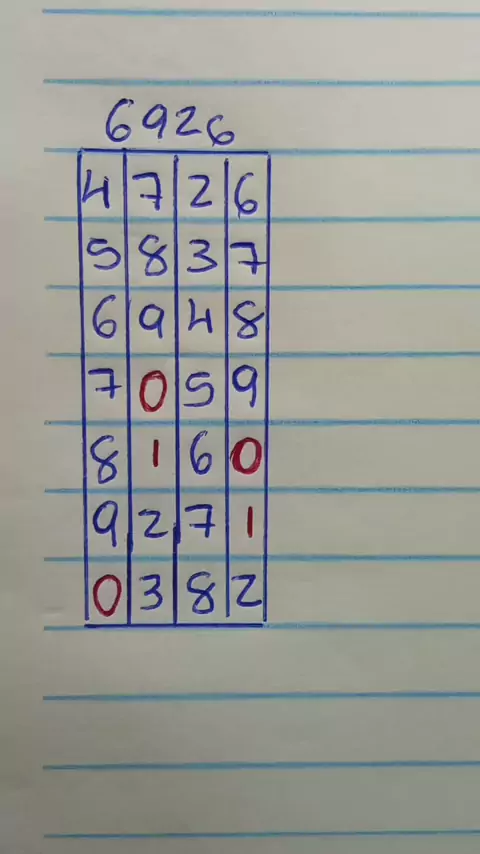 6926
4 7 2 6
5 8 3 7
6 9 4 8
7 0 5 9
8 1 6 0
9 2 7 1
0 3 8 2